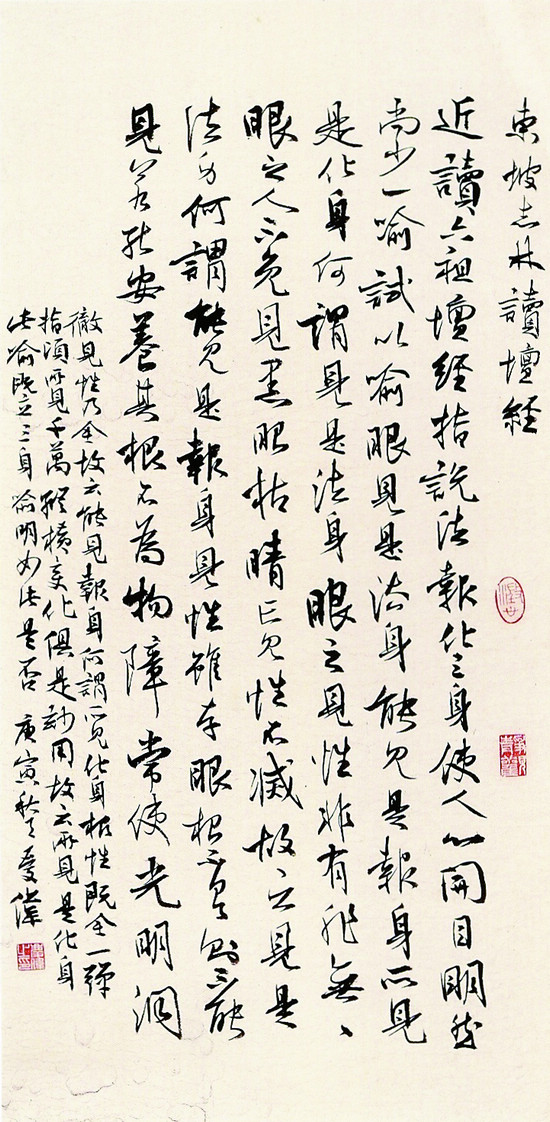 東坡志林讀壇經
近讀六祖壇經指說法報化三身使人心開目明然
尚少一喻試以喻眼見是法身能見是報身所見
是化身何謂見是法身眼之見性非有非無、
眼之人不免見黑眼枯睛亡見性不滅故云見是
法身何謂能見是報身見性雖存眼根不具則不能
見若能安養其根不為物障常使光明洞
徹見性乃全故云能見報身何謂所見化身根性既全一彈
指頃所見千萬縱橫變化俱是妙用故云所見是化身
此喻既立三身喻明如此是否 庚寅秋